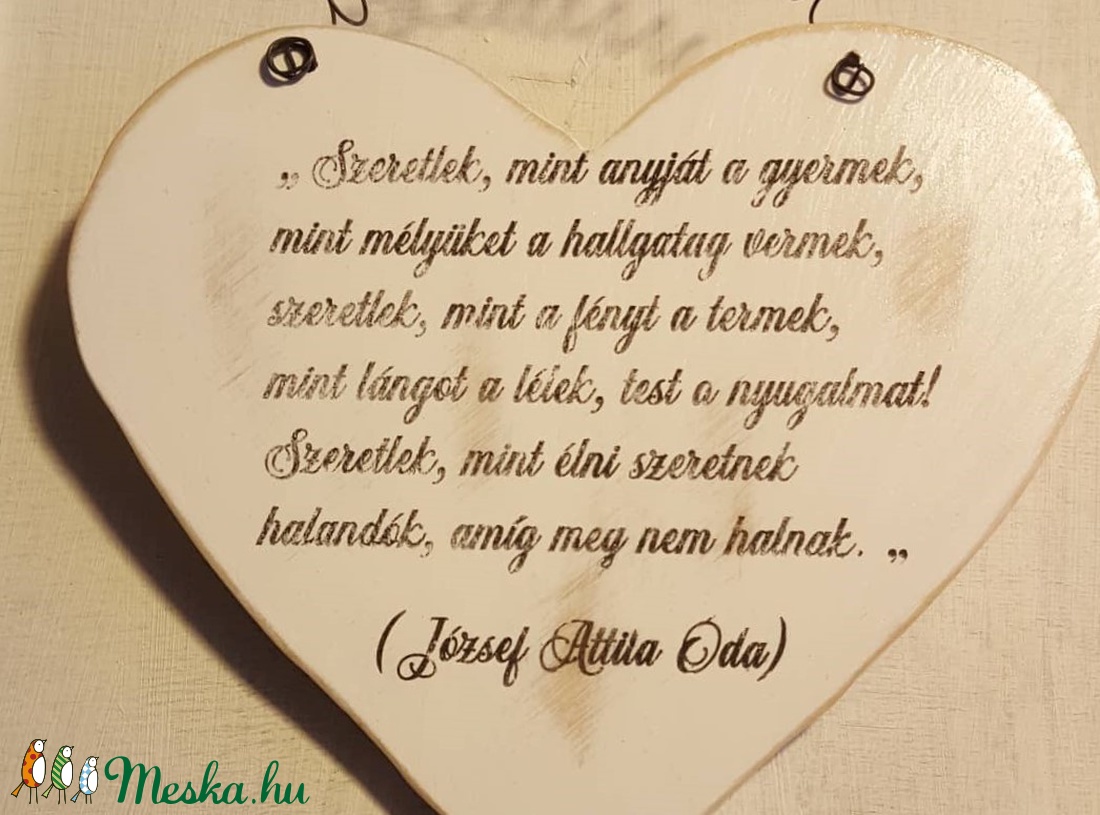 „ Szeretlek, mint anyját a gyermek,
mint mélyüket a hallgatag vermek,
szeretlek, mint a fényt a termek,
mint lángot a lélek, test a nyugalmat!
Szeretlek, mint élni szeretnek
halandók, amíg meg nem halnak. „
(József Attila Óda)
Meska.hu